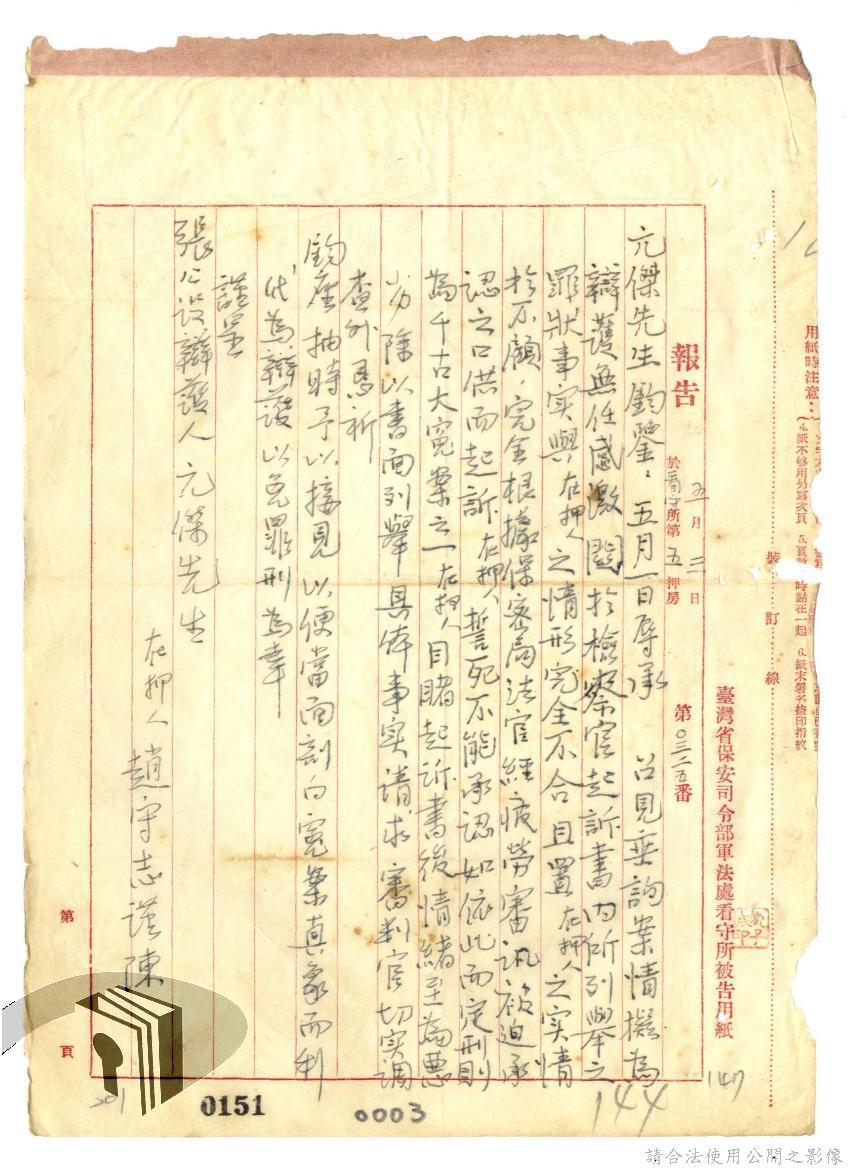 用紙時注意：
4.紙不够用另寫次頁 5.頁數 時黏在一起 6.紙末署名捺印指紋
裝訂線
臺灣省保安司令部軍法處看守所被告用紙
報告
五月三日
於看守所第五押房
第〇三二五番
元傑先生鈞鑒：五月一日辱承 召見垂詢案情擬為
辯護無任感激關於檢察官起訴書內所列舉之
罪狀事實與在押人之情形完全不合且置在押人之實情
於不顧，完全根據保密局法官經疲勞審訊被迫承
認之口供而起訴在押人誓死不能承認如依此而定刑則
為千古大寃案之一在押人目睹起訴書後情緒至為惡
劣除以書面列舉具体事實請求審判官切实調
查外懇祈
鈞座抽時予以接見以便當面剖白寃案真象而利
代為辯護以免罪刑為幸
謹呈
張公設辯護人元傑先生
在押人 趙守志謹陳
第 頁
201
0151
0003
144
147
請合法使用公開之影像